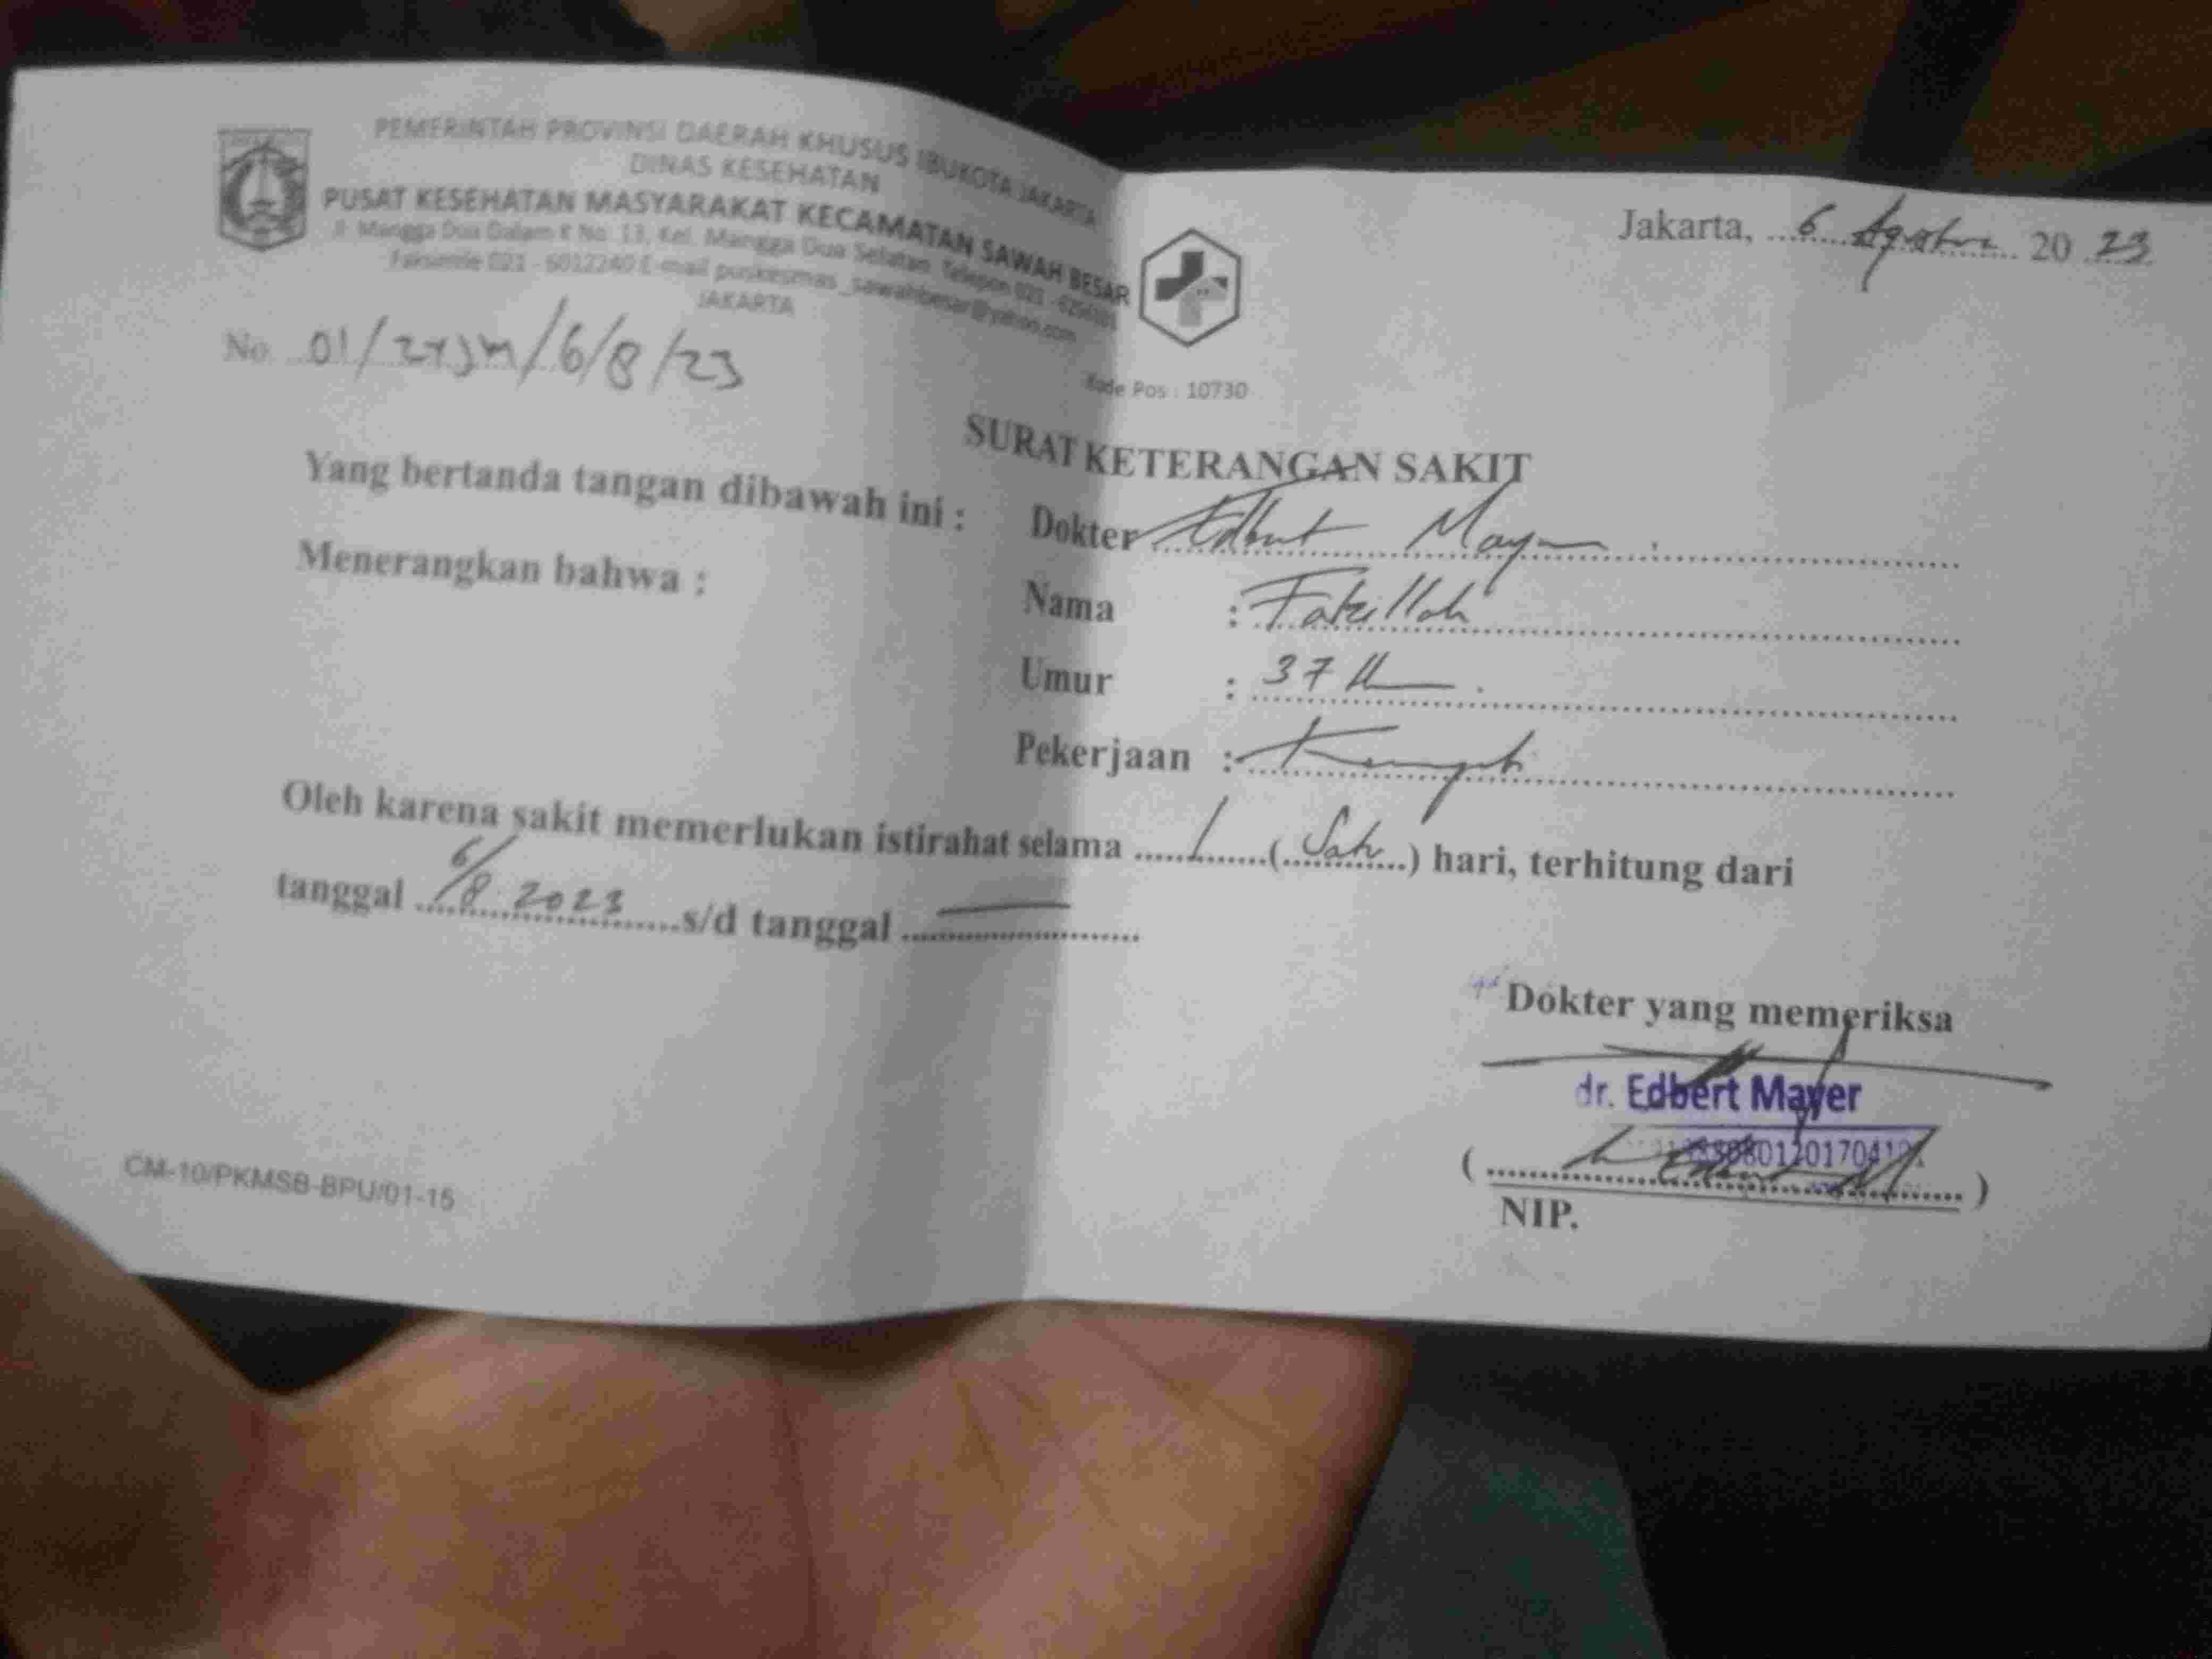 PEMERINTAH PROVINSI DAERAH KHUSUS IBUKOTA JAKARTA
DINAS KESEHATAN
PUSAT KESEHATAN MASYARAKAT KECAMATAN SAWAH BESAR
Jl. Mangga Dua Dalam K No. 13, Kel. Mangga Dua Selatan Telepon 021 -
Faksimile 021 - 6012240 E-mail puskesmas_sawahbesar@yahoo.com
JAKARTA
Kode Pos : 10730
Jakarta, 6 Agustus 20 23
No. 01/ /6/8/23
SURAT KETERANGAN SAKIT
Yang bertanda tangan dibawah ini : Dokter Edbert Mayer
Menerangkan bahwa : Nama :
Umur : 37 th
Pekerjaan :
Oleh karena sakit memerlukan istirahat selama 1 (Satu) hari, terhitung dari
tanggal 6/8 2023 s/d tanggal —
Dokter yang memeriksa
dr. Edbert Mayer
( )
NIP.
CM-10/PKMSB-BPU/01-15